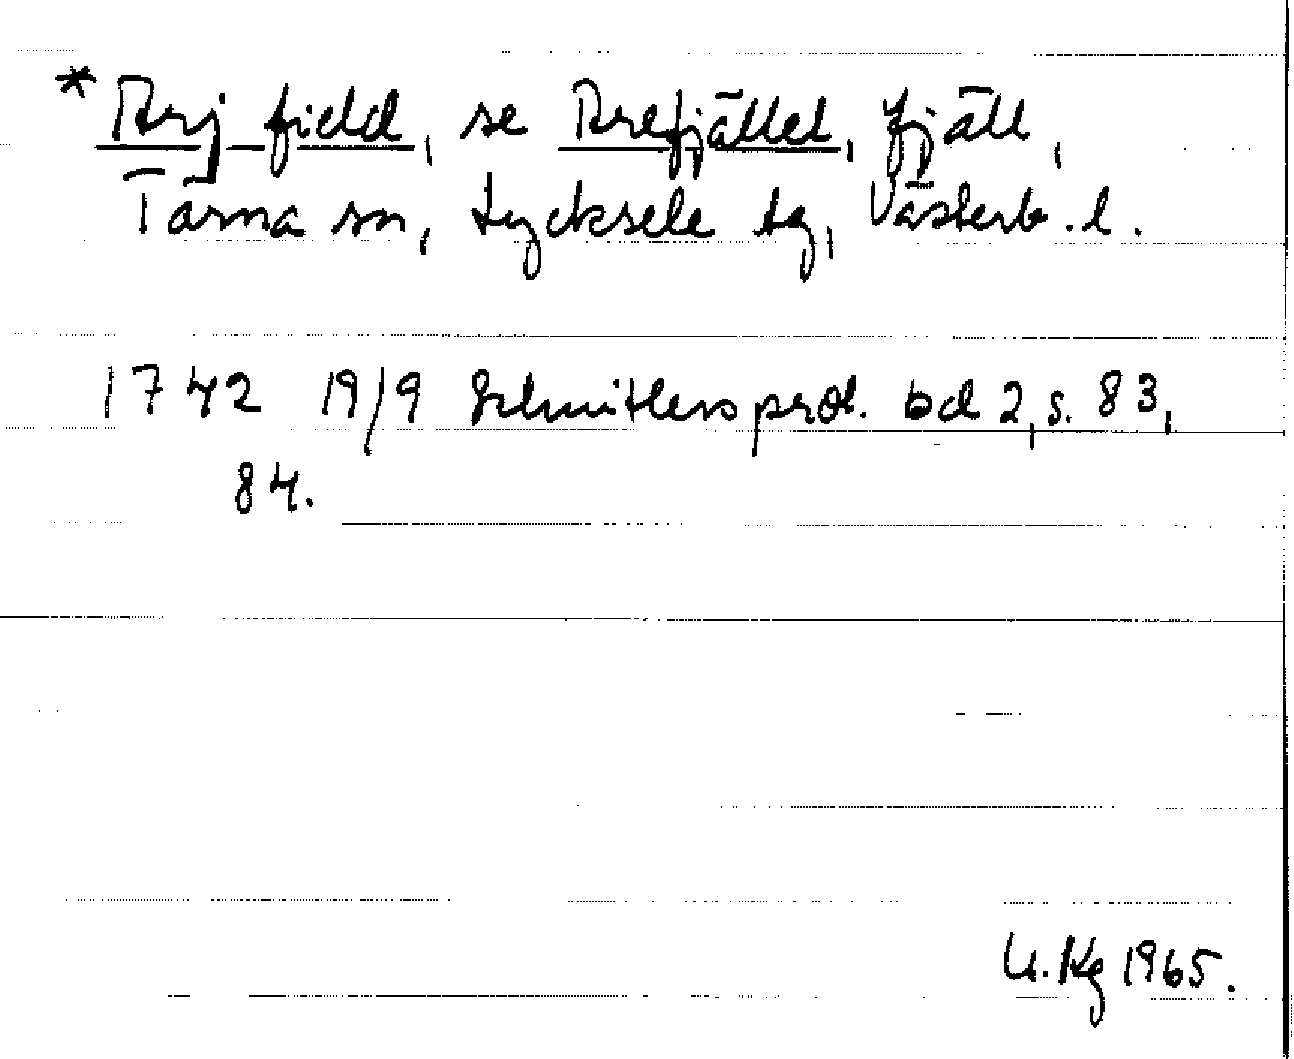 *Arj field, se Arefjället, fjäll,
Tärna sn, Lycksele tg, Västerb. l.
1742 19/9 Schnitlers prot. bd 2, s. 83,
84.
U. Kg 1965.